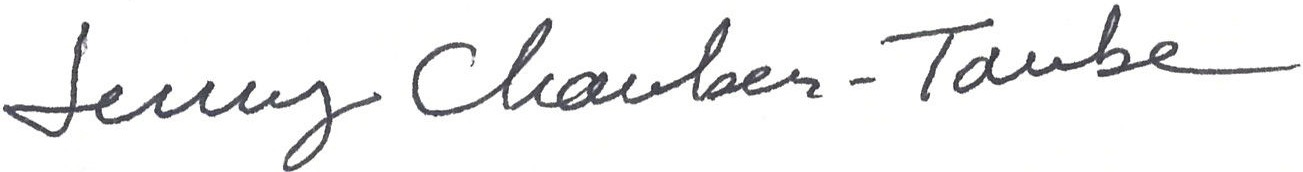 Jenny Chamber-Taube